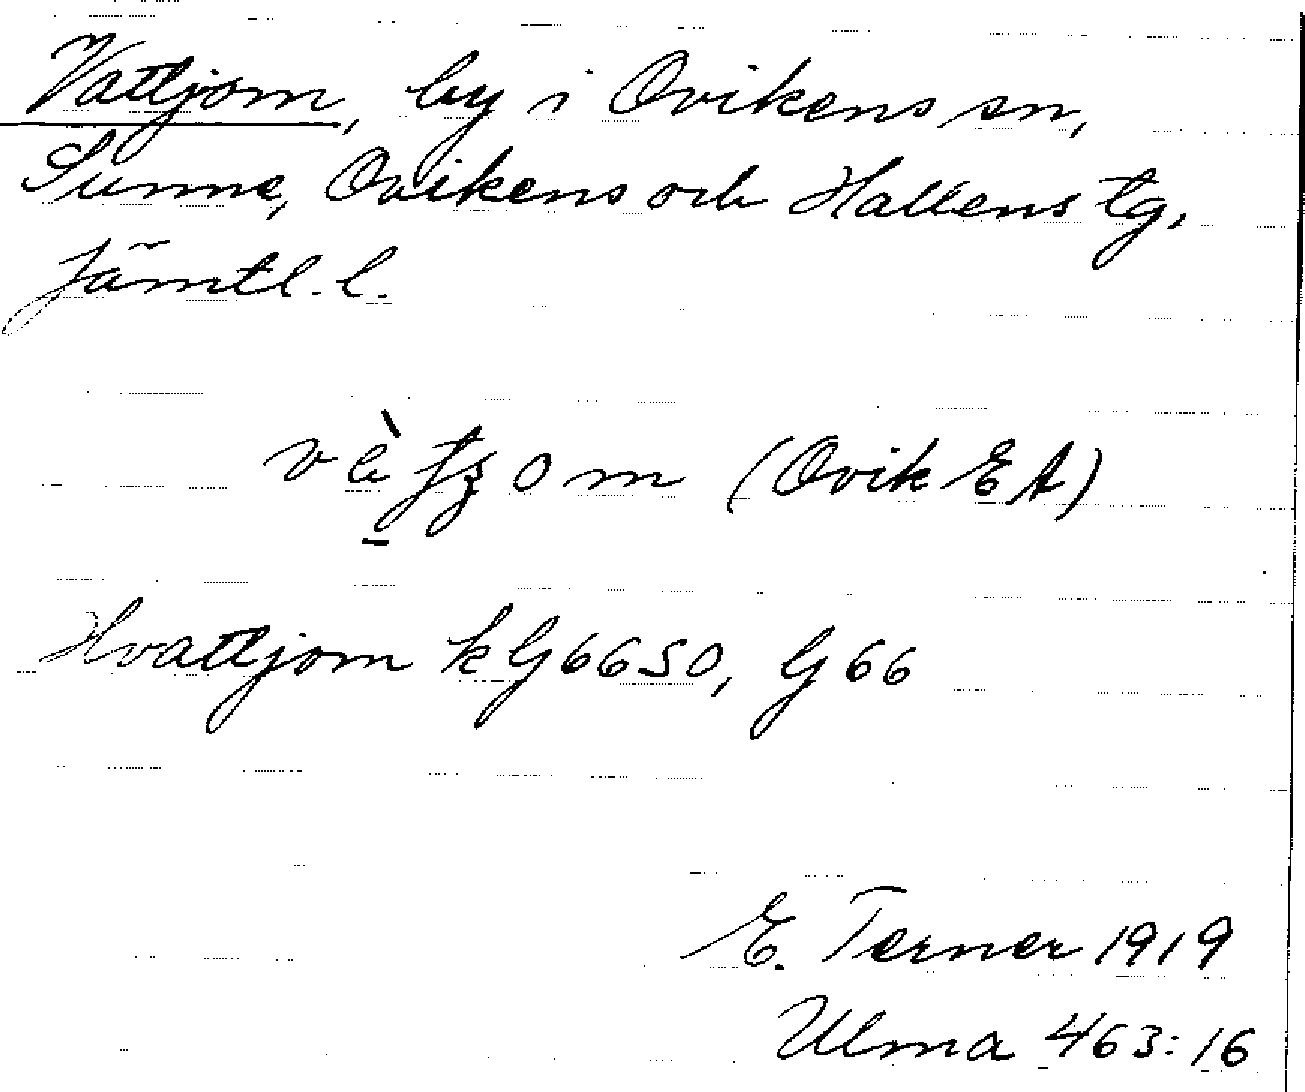 Vattjom, by i Ovikens sn,
Sunne, Ovikens och Hallens tg,
Jämtl. l.
(Ovik EA)
Hvattjom kG6650, G66
E. Terner 1919
Ulma 463:16